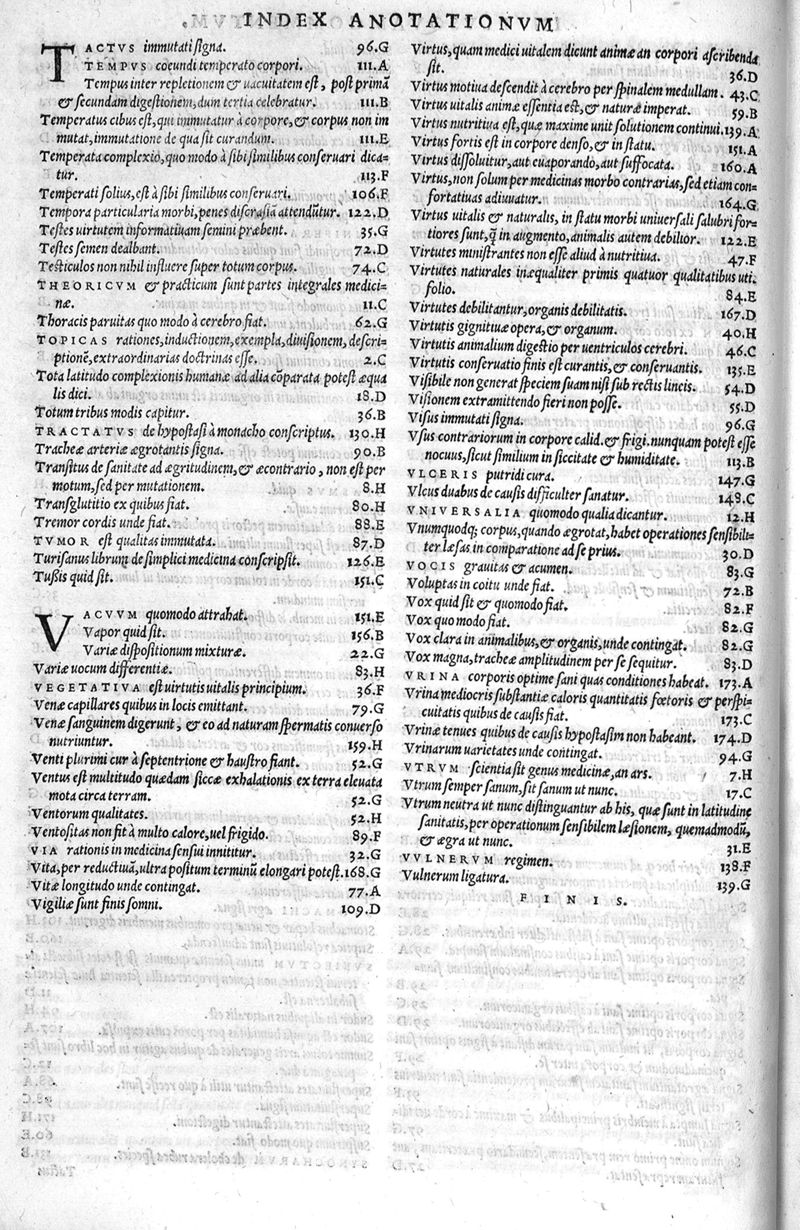 INDEX ANOTATIONVM
TACTVS immutati signa. 96.G
TEMPVS coeundi temperato corpori. 111.A
Tempus inter repletionem & uacuitatem est, post primā
& secundam digestionem, dum tertia celebratur. 111.B
Temperatus cibus est, qui immutatur à corpore, & corpus non im
mutat, immutatione de qua sit curandum. 111.E
Temperata complexio, quo modo à sibi similibus conseruari dica-
tur. 113.F
Temperati solius, est à sibi similibus conseruari. 106.F
Tempora particularia morbi, penes discrasiā attendūtur. 122.D
Testes uirtutem informatiuam semini præbent. 35.G
Testes semen dealbant. 72.D
Testiculos non nihil influere super totum corpus. 74.C
THEORICVM & practicum sunt partes integrales medici-
næ. 11.C
Thoracis paruitas quo modo à cerebro fiat. 62.G
TOPICAS rationes, inductionem, exempla, diuisionem, descri-
ptionē, extraordinarias doctrinas esse. 2.C
Tota latitudo complexionis humanæ ad alia cōparata potest æqua
lis dici. 18.D
Totum tribus modis capitur. 36.B
TRACTATVS de hypostasi à monacho conscriptus. 130.H
Tracheæ arteriæ ægrotantis signa. 90.B
Transitus de sanitate ad ægritudinem, & æcontrario, non est per
motum, sed per mutationem. 8.H
Transglutitio ex quibus fiat. 80.H
Tremor cordis unde fiat. 88.E
TVMOR est qualitas immutata. 87.D
Turisanus librum de simplici medicina conscripsit. 126.E
Tussis quid sit. 151.C
VACVVM quomodo attrahat. 151.E
Vapor quid sit. 156.B
Variæ dispositionum mixturæ. 22.G
Variæ uocum differentiæ. 83.H
VEGETATIVA est uirtutis uitalis principium. 36.F
Venæ capillares quibus in locis emittant. 79.G
Venæ sanguinem digerunt, & eo ad naturam spermatis conuerso
nutriuntur. 159.H
Venti plurimi cur à septentrione & haustro fiant. 52.G
Ventus est multitudo quædam siccæ exhalationis ex terra eleuata
mota circa terram. 52.G
Ventorum qualitates. 52.H
Ventositas non fit à multo calore, uel frigido. 89.F
VIA rationis in medicina sensui innititur. 32.G
Vita, per reductiuā, ultra positum terminū elongari potest. 168.G
Vitæ longitudo unde contingat. 77.A
Vigiliæ sunt finis somni. 109.D
Virtus, quam medici uitalem dicunt animæ an corpori ascribenda
sit. 36.D
Virtus motiua descendit à cerebro per spinalem medullam. 43.C
Virtus uitalis animæ essentia est, & naturæ imperat. 59.B
Virtus nutritiua est, quæ maxime unit solutionem continui. 139.A
Virtus fortis est in corpore denso, & in statu. 151.A
Virtus dissoluitur, aut euaporando, aut suffocata. 160.A
Virtus, non solum per medicinas morbo contrarias, sed etiam con-
fortatiuas adiuuatur. 164.G
Virtus uitalis & naturalis, in statu morbi uniuersali salubri for-
tiores sunt, q̃ in augmento, animalis autem debilior. 122.E
Virtutes ministrantes non esse aliud à nutritiua. 47.F
Virtutes naturales inæqualiter primis quatuor qualitatibus uti.
folio. 84.E
Virtutes debilitantur, organis debilitatis. 167.D
Virtutis gignitiuæ opera, & organum. 40.H
Virtutis animalium digestio per uentriculos cerebri. 46.C
Virtutis conseruatio finis est curantis, & conseruantis. 135.E
Visibile non generat speciem suam nisi sub rectis lineis. 54.D
Visionem extramittendo fieri non posse. 55.D
Visus immutati signa. 96.G
Vsus contrariorum in corpore calid. & frigi. nunquam potest esse
nocuus, sicut similium in siccitate & humiditate. 113.B
VLCERIS putridi cura. 147.G
Vlcus duabus de causis difficulter sanatur. 148.C
VNIVERSALIA quomodo qualia dicantur. 12.H
Vnumquodq; corpus, quando ægrotat, habet operationes sensibili-
ter læsas in comparatione ad se prius. 30.D
VOCIS grauitas & acumen. 83.G
Voluptas in coitu unde fiat. 72.B
Vox quid sit & quomodo fiat. 82.F
Vox quo modo fiat. 82.G
Vox clara in animalibus, & organis, unde contingat. 82.G
Vox magna, tracheæ amplitudinem per se sequitur. 83.D
VRINA corporis optime sani quas conditiones habeat. 173.A
Vrina mediocris substantiæ caloris quantitatis fœtoris & perspi-
cuitatis quibus de causis fiat. 173.C
Vrinæ tenues quibus de causis hypostasim non habeant. 174.D
Vrinarum uarietates unde contingat. 94.G
VTRVM scientia sit genus medicinæ, an ars. 7.H
Vtrum semper sanum, sit sanum ut nunc. 17.C
Vtrum neutra ut nunc distinguantur ab his, quæ sunt in latitudine
sanitatis, per operationum sensibilem læsionem, quemadmodū,
& ægra ut nunc. 31.E
VVLNERVM regimen. 138.F
Vulnerum ligatura. 139.G
FINIS.